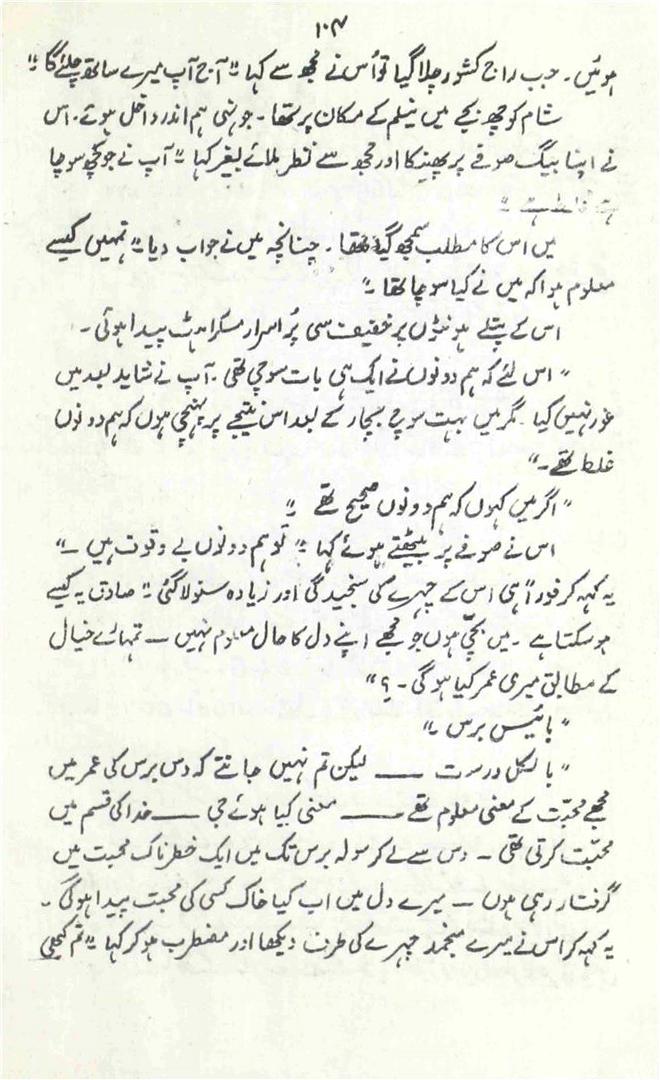 ۱۰۴
ہوئیں۔ جب راج کشور چلا گیا تو اُس نے مجھ سے کہا "آج آپ میرے ساتھ چلئے گا"
شام کو چھ بجے میں نیلم کے مکان پر تھا۔ جونہی ہم اندر داخل ہوئے۔ اس
نے اپنا بیگ صوفے پر پھینکا اور مجھ سے نظر ملائے بغیر کہا "آپ نے جو کچھ سوچا
ہے غلط ہے"
میں اس کا مطلب سمجھ گیا تھا۔ چنانچہ میں نے جواب دیا "تمہیں کیسے
معلوم ہوا کہ میں نے کیا سوچا تھا۔"
اس کے پتلے ہونٹوں پر خفیف سی پُر اسرار مسکراہٹ پیدا ہوئی۔
"اس لئے کہ ہم دونوں نے ایک ہی بات سوچی تھی۔ آپ نے شاید بعد میں
غور نہیں کیا۔ مگر میں بہت سوچ بچار کے بعد اس نتیجے پر پہنچی ہوں کہ ہم دونوں
غلط تھے۔"
"اگر میں کہوں کہ ہم دونوں صحیح تھے۔"
اس نے صوفے پر بیٹھتے ہوئے کہا "تو ہم دونوں بے وقوف ہیں۔"
یہ کہہ کر فوراً ہی اس کے چہرے کی سنجیدگی اور زیادہ سنولا گئی "صادق یہ کیسے
ہو سکتا ہے۔ میں بچی ہوں جو مجھے اپنے دل کا حال معلوم نہیں — تمہارے خیال
کے مطابق میری عمر کیا ہو گی۔؟"
"بائیس برس۔"
"بالکل درست —— لیکن تم نہیں جانتے کہ دس برس کی عمر میں
مجھے محبّت کے معنی معلوم تھے —— معنی کیا ہوئے جی —— خدا کی قسم میں
محبّت کرتی تھی۔ دس سے لے کر سولہ برس تک میں ایک خطرناک محبت میں
گرفتار رہی ہوں — میرے دل میں اب کیا خاک کسی کی محبت پیدا ہو گی۔
یہ کہہ کر اس نے میرے منجمد چہرے کی طرف دیکھا اور مضطرب ہو کر کہا "تم کبھی